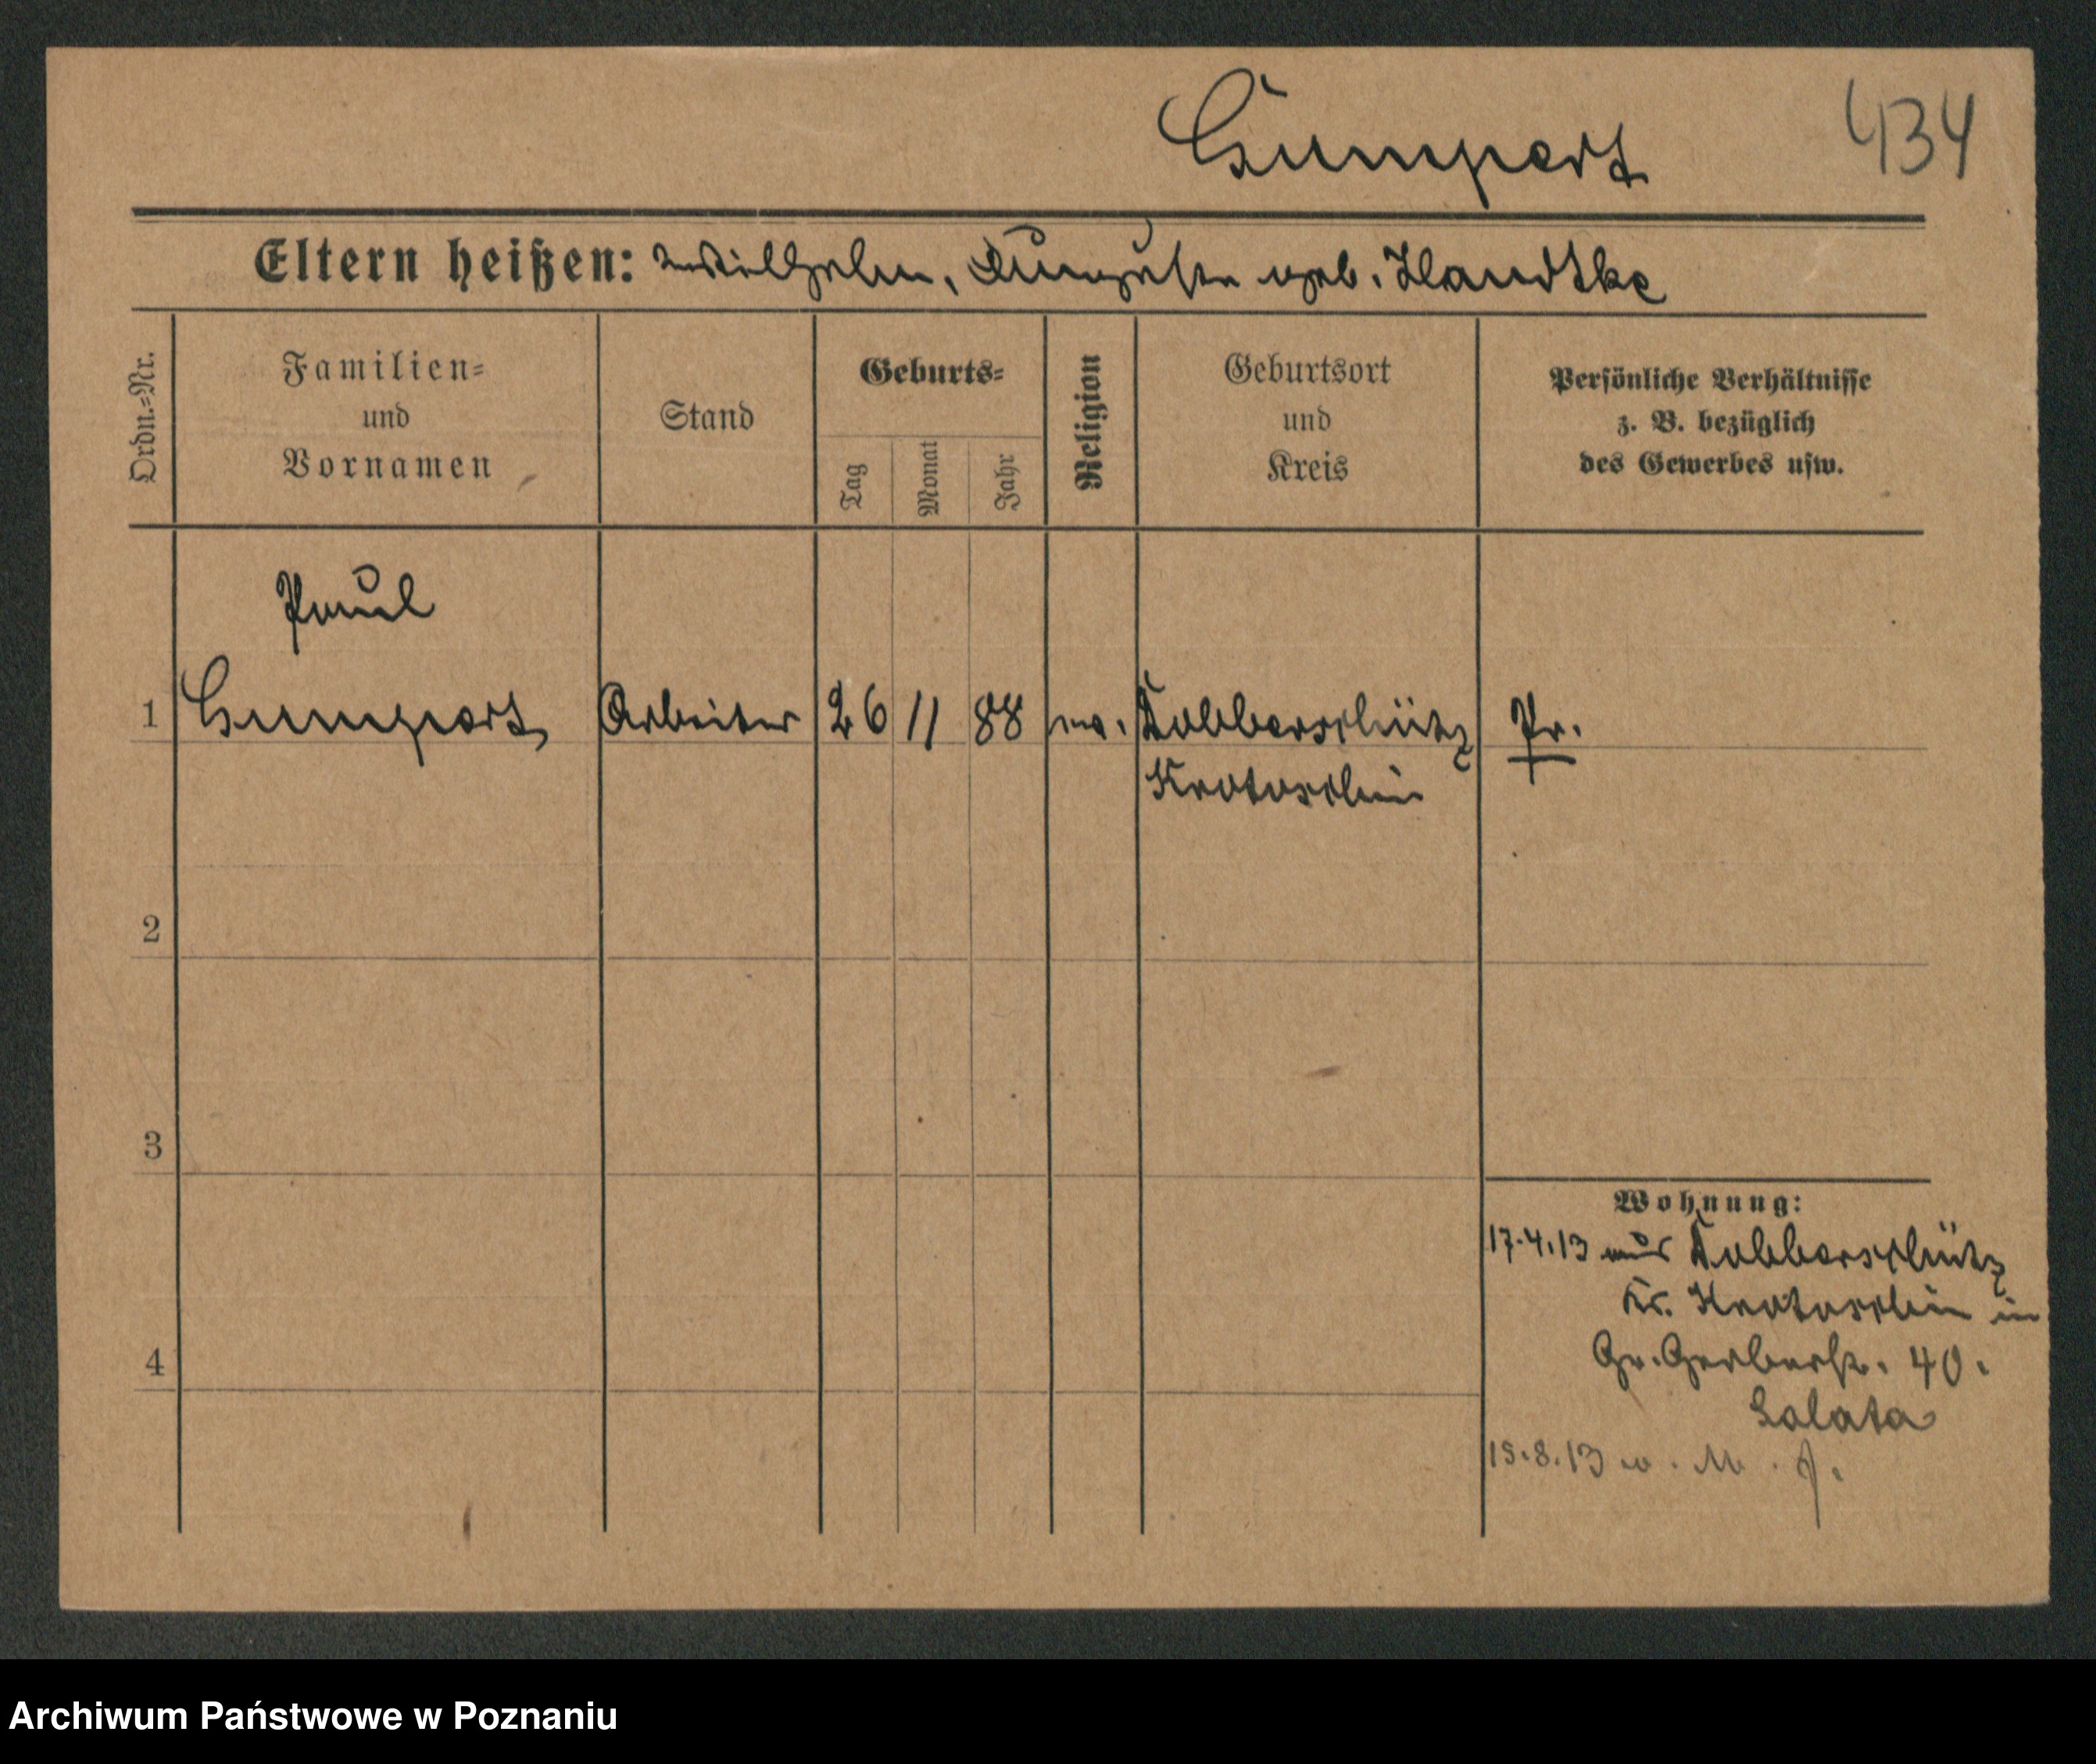 Gumpert 434
Eltern heißen: Wilhelm, Auguste geb. Handtke
Ordn.-Nr.
Familien-
und
Vornamen
Stand
Geburts-
Tag
Monat
Jahr
Religion
Geburtsort
und
Kreis
Persönliche Verhältnisse
z. B. bezüglich
des Gewerbes usw.
Paul
1 Gumpert Arbeiter 26 11 88 Dobberschütz Pr.
Krotoschin
2
3
4
Wohnung:
17.4.13 aus Dobberschütz
Kr. Krotoschin in
Gr. Gerberstr. 40.
Salata
15.8.13
Archiwum Państwowe w Poznaniu